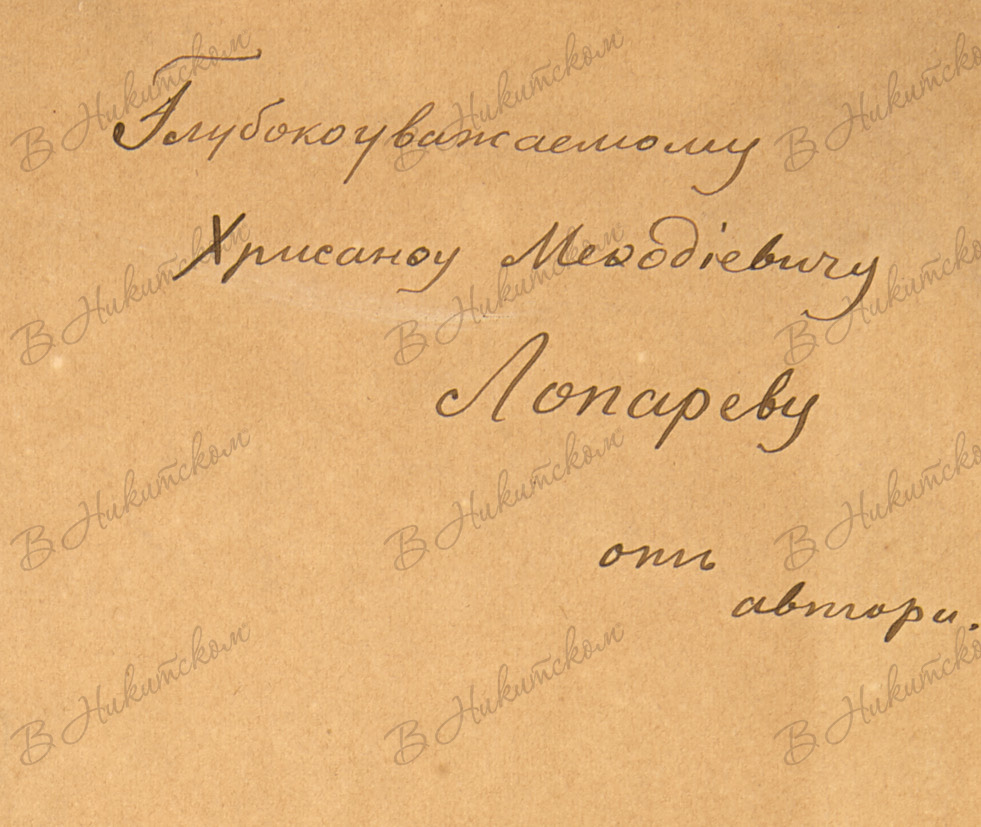 Глубокоуважаемому
Хрисанѳу Меѳодіевичу
Лопареву
отъ
автора.
В Никитском
В Никитском
В Никитском
В Никитском
В Никитском
В Никитском
В Никитском
В Никитском
В Никитском
В Никитском
В Никитском
В Никитском